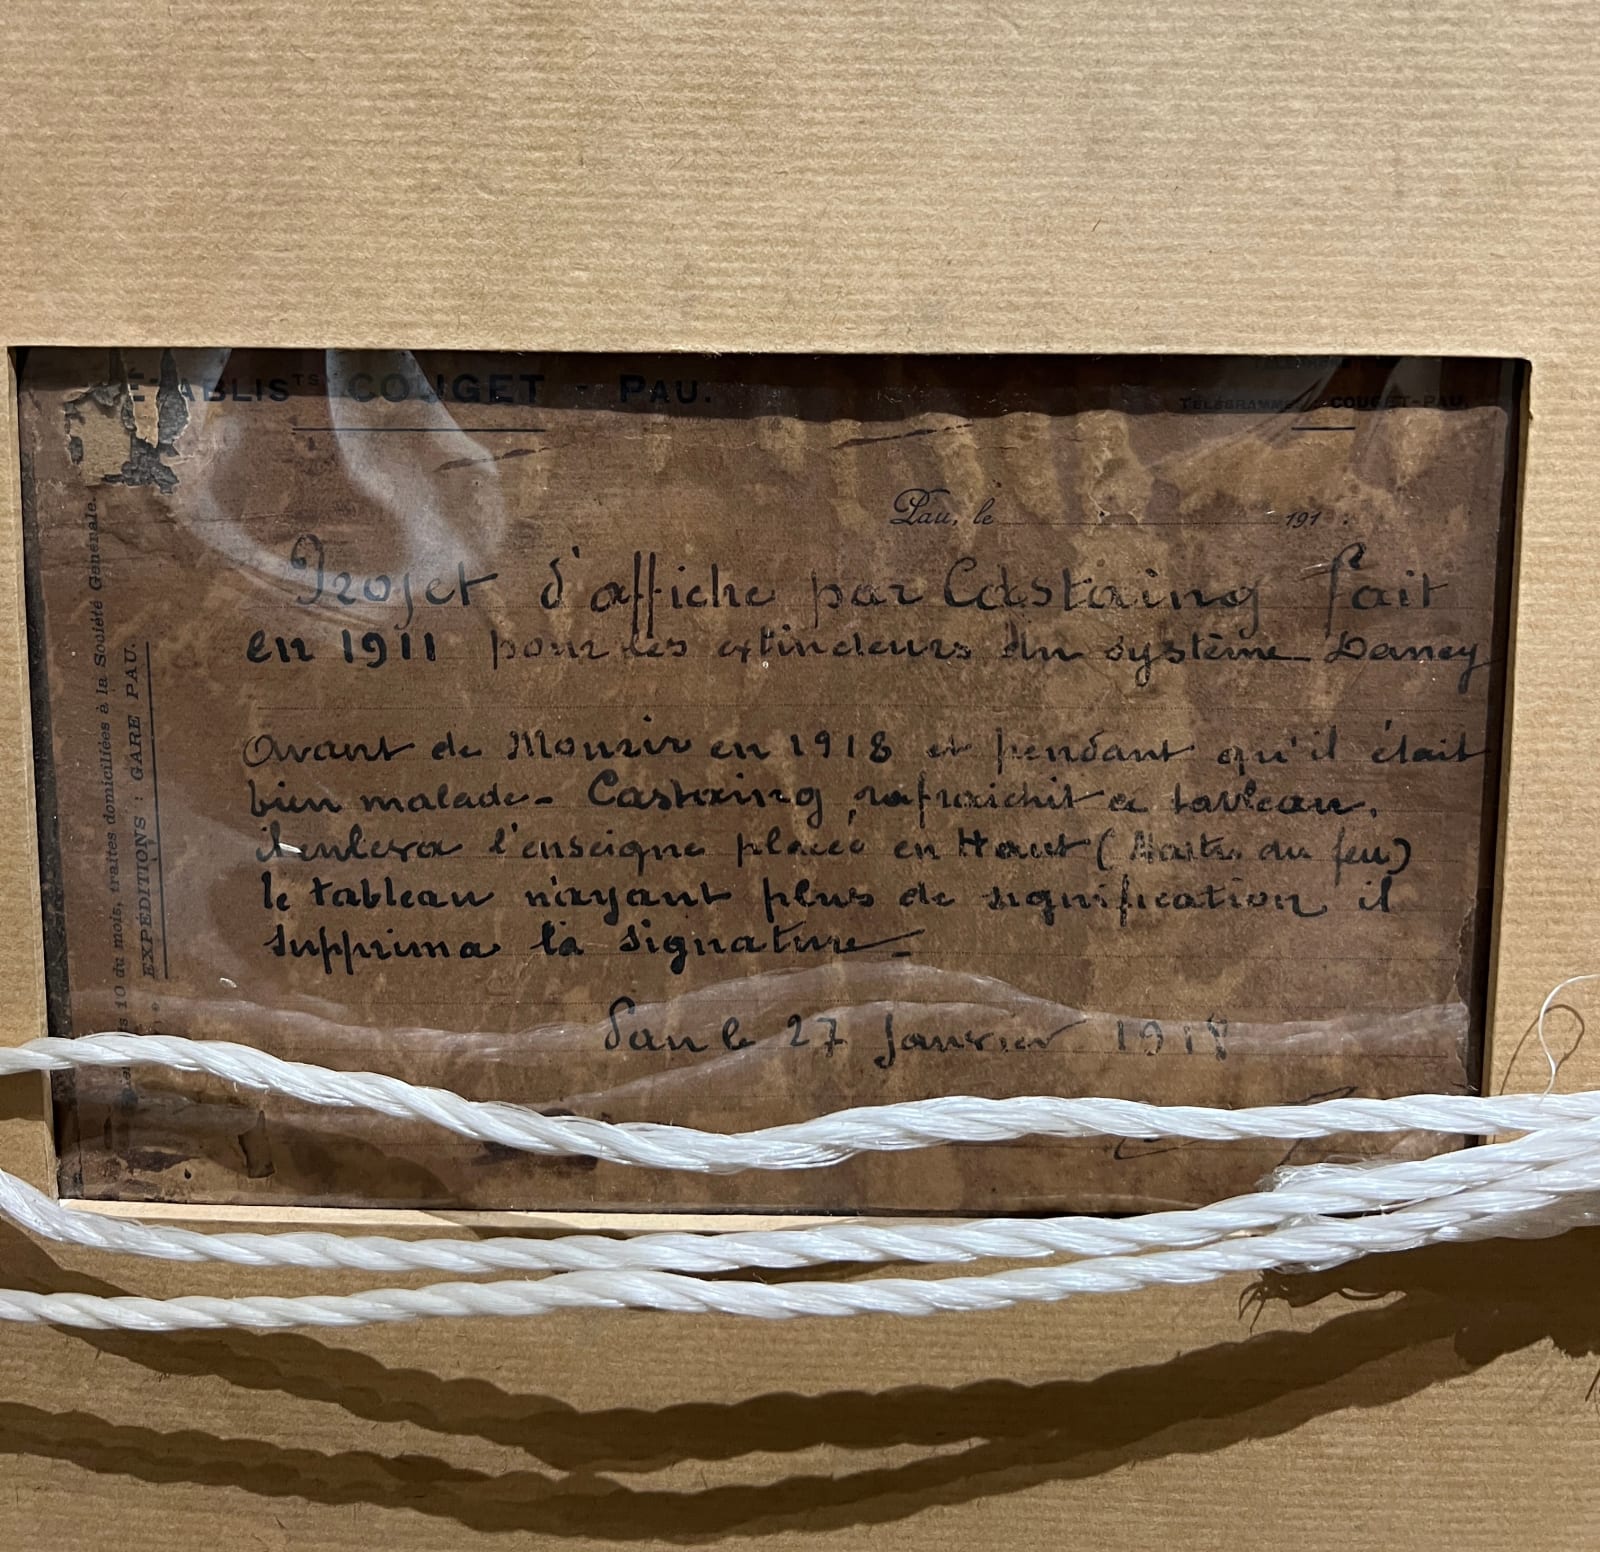 ÉTABLISTS COUGET - PAU.
TÉLÉGRAMMES : COUGET-PAU.
Pau, le 191
Projet d'affiche par Castaing fait
en 1911 pour les extincteurs du système Daney
Avant de Mourir en 1918 et pendant qu'il était
bien malade - Castaing rafraichit ce tableau.
il enleva l'enseigne placée en Haut (Maitre du feu)
le tableau n'ayant plus de signification il
supprima la signature -
Pau le 27 Janvier 1918
10 du mois, traites domiciliées à la Société Générale.
EXPÉDITIONS : GARE PAU.